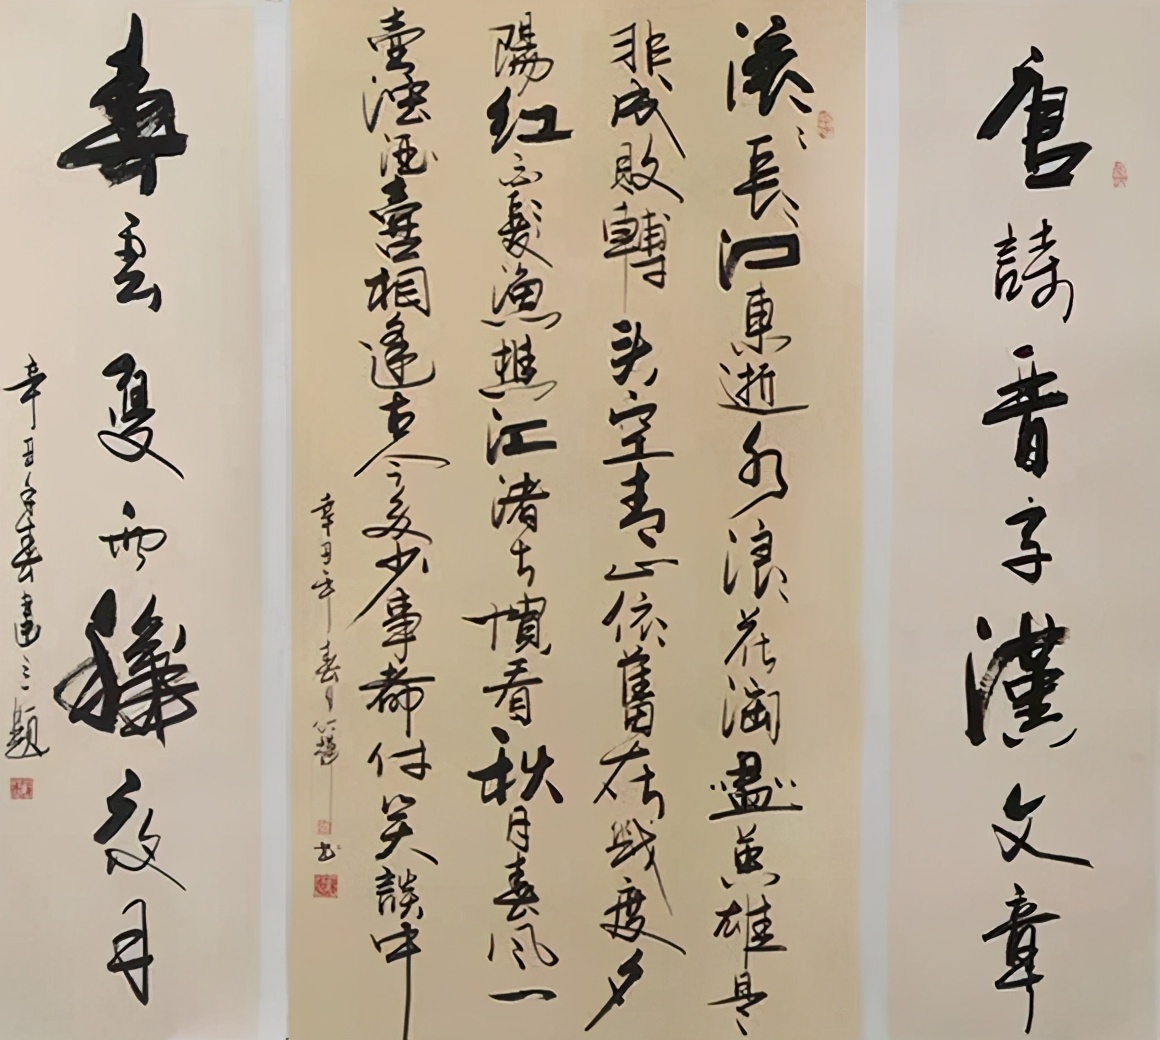 唐詩晋字漢文章
滚滚長江東逝水浪花淘盡英雄是
非成敗轉头空青山依舊在幾度夕
陽紅白髮漁樵江渚上慣看秋月春風一
壺濁酒喜相逢古今多少事都付笑談中
辛丑年春月
春雲夏雨秋夜月
辛丑年春建三題